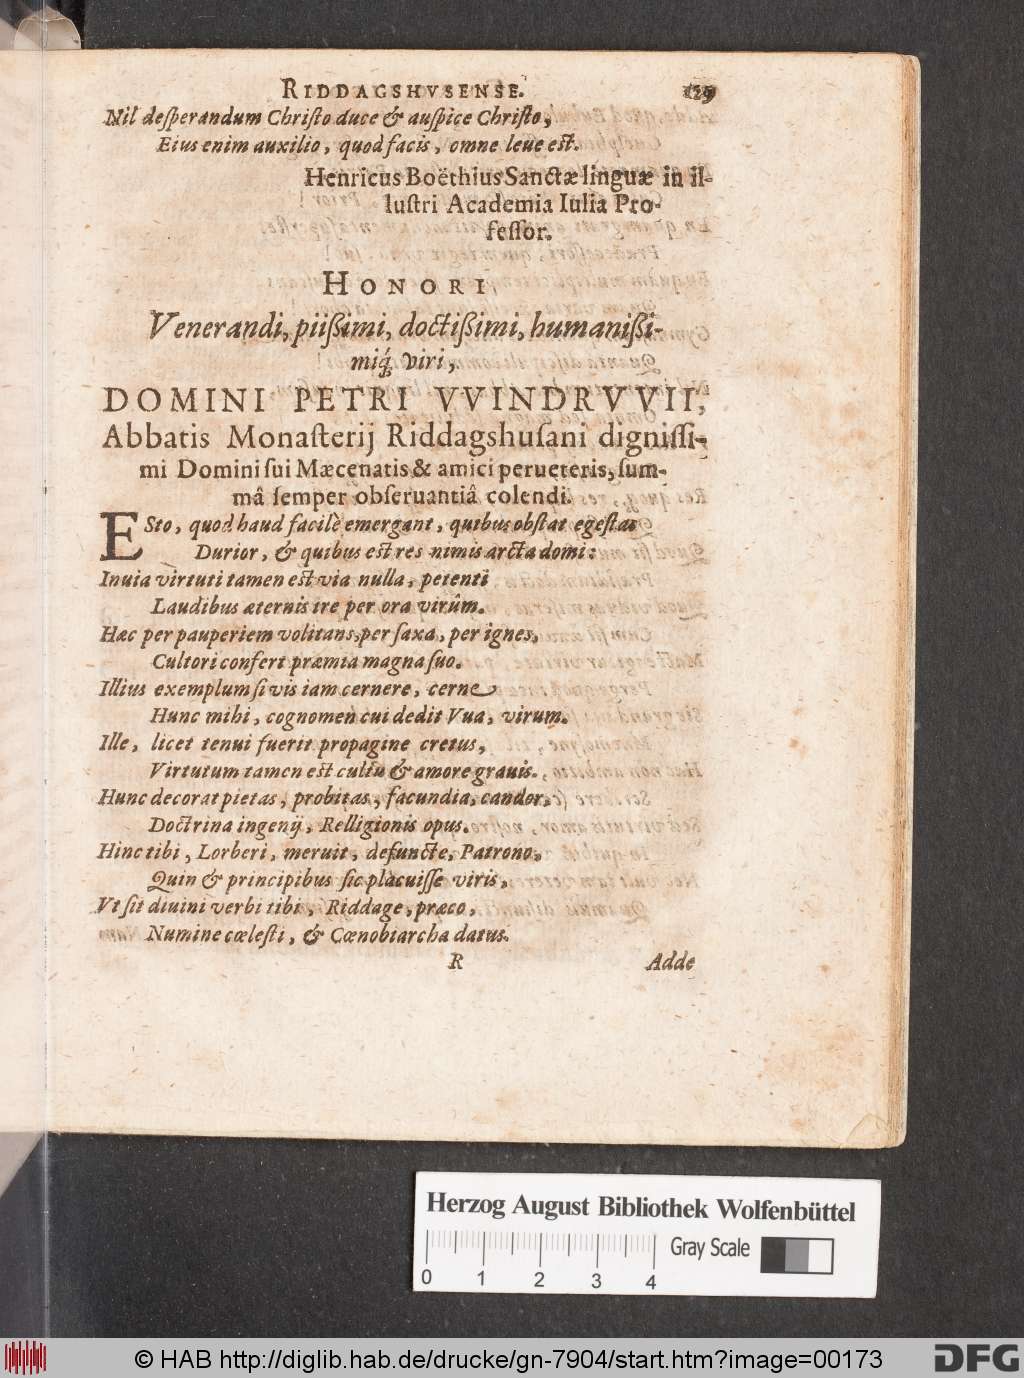 RIDDAGSHVSENSE. 129
Nil deſperandum Chriſto duce & auſpice Chriſto,
Eius enim auxilio, quod facis, omne leue eſt.
Henricus Boëthius Sanctæ linguæ in il-
luſtri Academia Iulia Pro-
feſſor.
HONORI
Venerandi, piißimi, doctißimi, humanißi-
miq́; viri,
DOMINI PETRI VVINDRVVII,
Abbatis Monaſterij Riddagshuſani digniſſi-
mi Domini ſui Mæcenatis & amici perueteris, ſum-
mâ ſemper obſeruantiâ colendi.
ESto, quod haud facilè emergant, quibus obſtat egeſtas
Durior, & quibus eſt res nimis arcta domi:
Inuia virtuti tamen eſt via nulla, petenti
Laudibus æternis ire per ora virûm.
Hæc per pauperiem volitans, per ſaxa, per ignes,
Cultori confert præmia magna ſuo.
Illius exemplum ſi vis iam cernere, cerne
Hunc mihi, cognomen cui dedit Vua, virum.
Ille, licet tenui fuerit propagine cretus,
Virtutum tamen eſt cultu & amore grauis.
Hunc decorat pietas, probitas, facundia, candor,
Doctrina ingenij, Relligionis opus.
Hinc tibi, Lorberi, meruit, defuncte, Patrono,
Quin & principibus ſic placuiſſe viris,
Vt ſit diuini verbi tibi, Riddage, præco,
Numine cœleſti, & Cœnobiarcha datus.
R Adde
Herzog August Bibliothek Wolfenbüttel
Gray Scale
0 1 2 3 4
© HAB http://diglib.hab.de/drucke/gn-7904/start.htm?image=00173
DFG